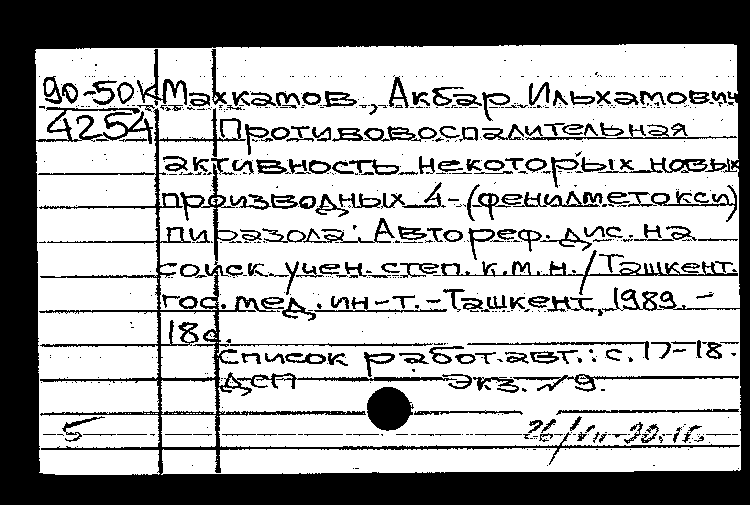 90-50К Махкамов, Акбар Ильхамович
4254 Противовоспалительная
активность некоторых новых
производных 4-(фенилметокси)
пиразола: Автореф. дис. на
соиск. учен. степ. к.м.н./Ташкент.
гос. мед. ин-т.-Ташкент, 1989. -
18с.
Список работ. авт.: с. 17-18.
ДСП Экз. № 9.
5 26/VII-90.